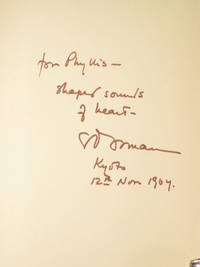 for Phyllis —
shaped sounds
of heart —
Cid Corman
Kyoto
12th Nov